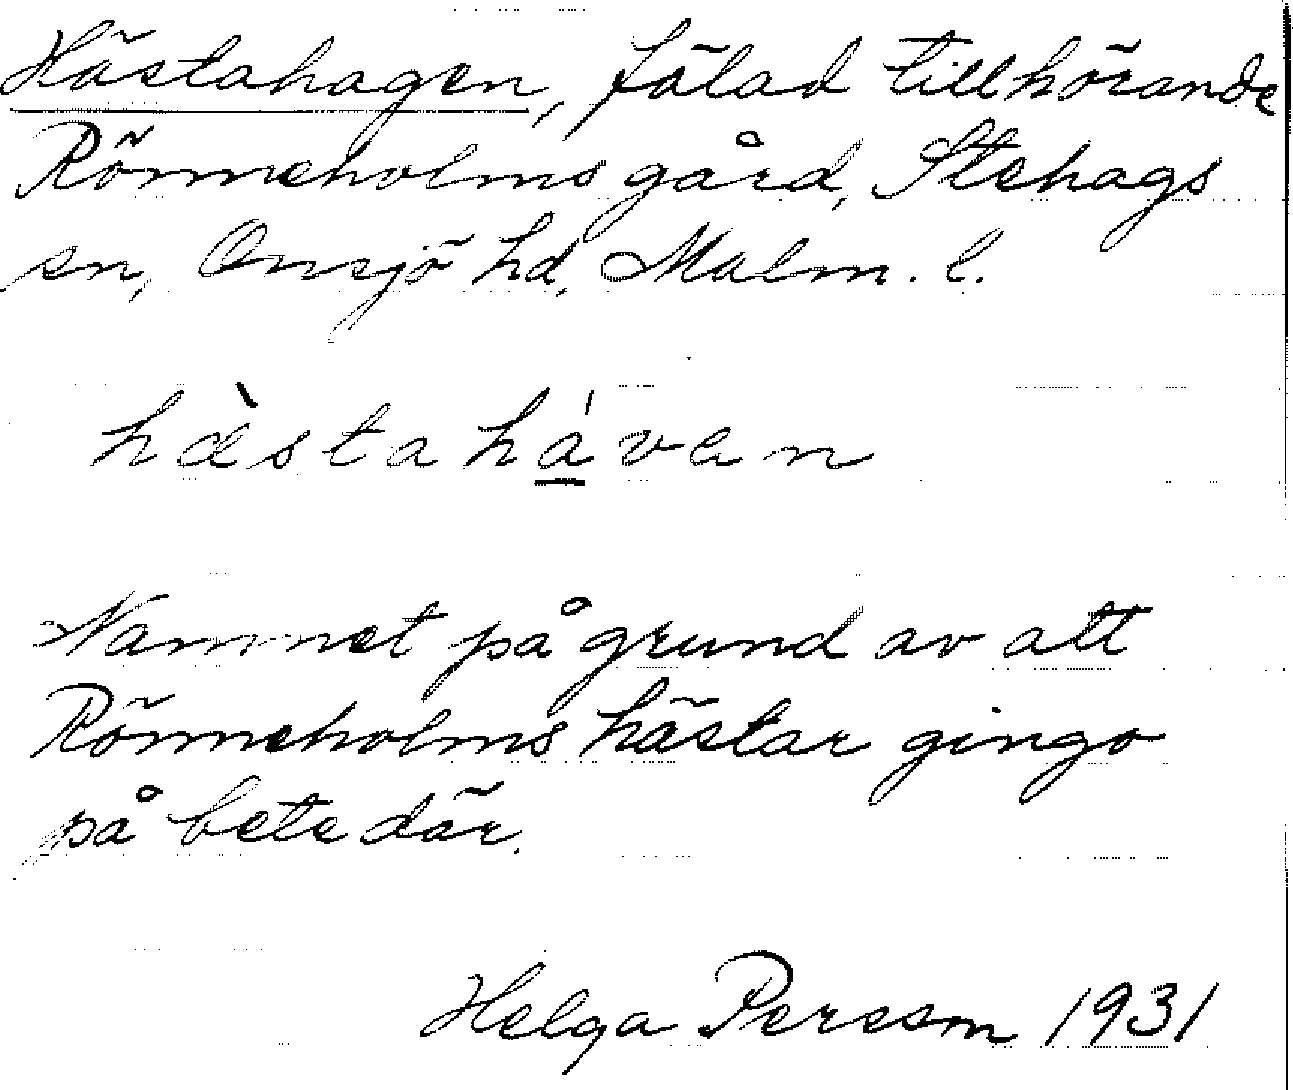 Hästahagen, fälad tillhörande
Rönneholms gård, Stehags
sn, Onsjö hd, Malm. l.
hæ̀stahá̱van
Namnet på grund av att
Rönneholms hästar gingo
på bete där.
Helga Persson 1931